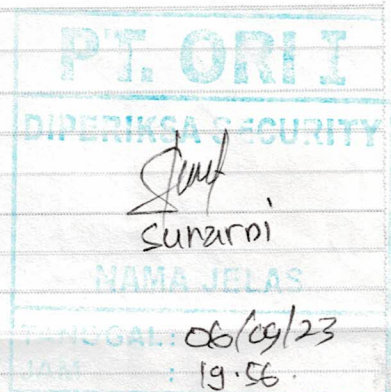 PT. ORI I
DIPERIKSA SECURITY
Sunarni
NAMA JELAS
TANGGAL : 06/09/23
JAM : 19.56.